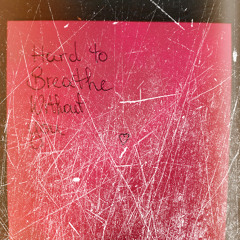 Hard to
Breathe
Without